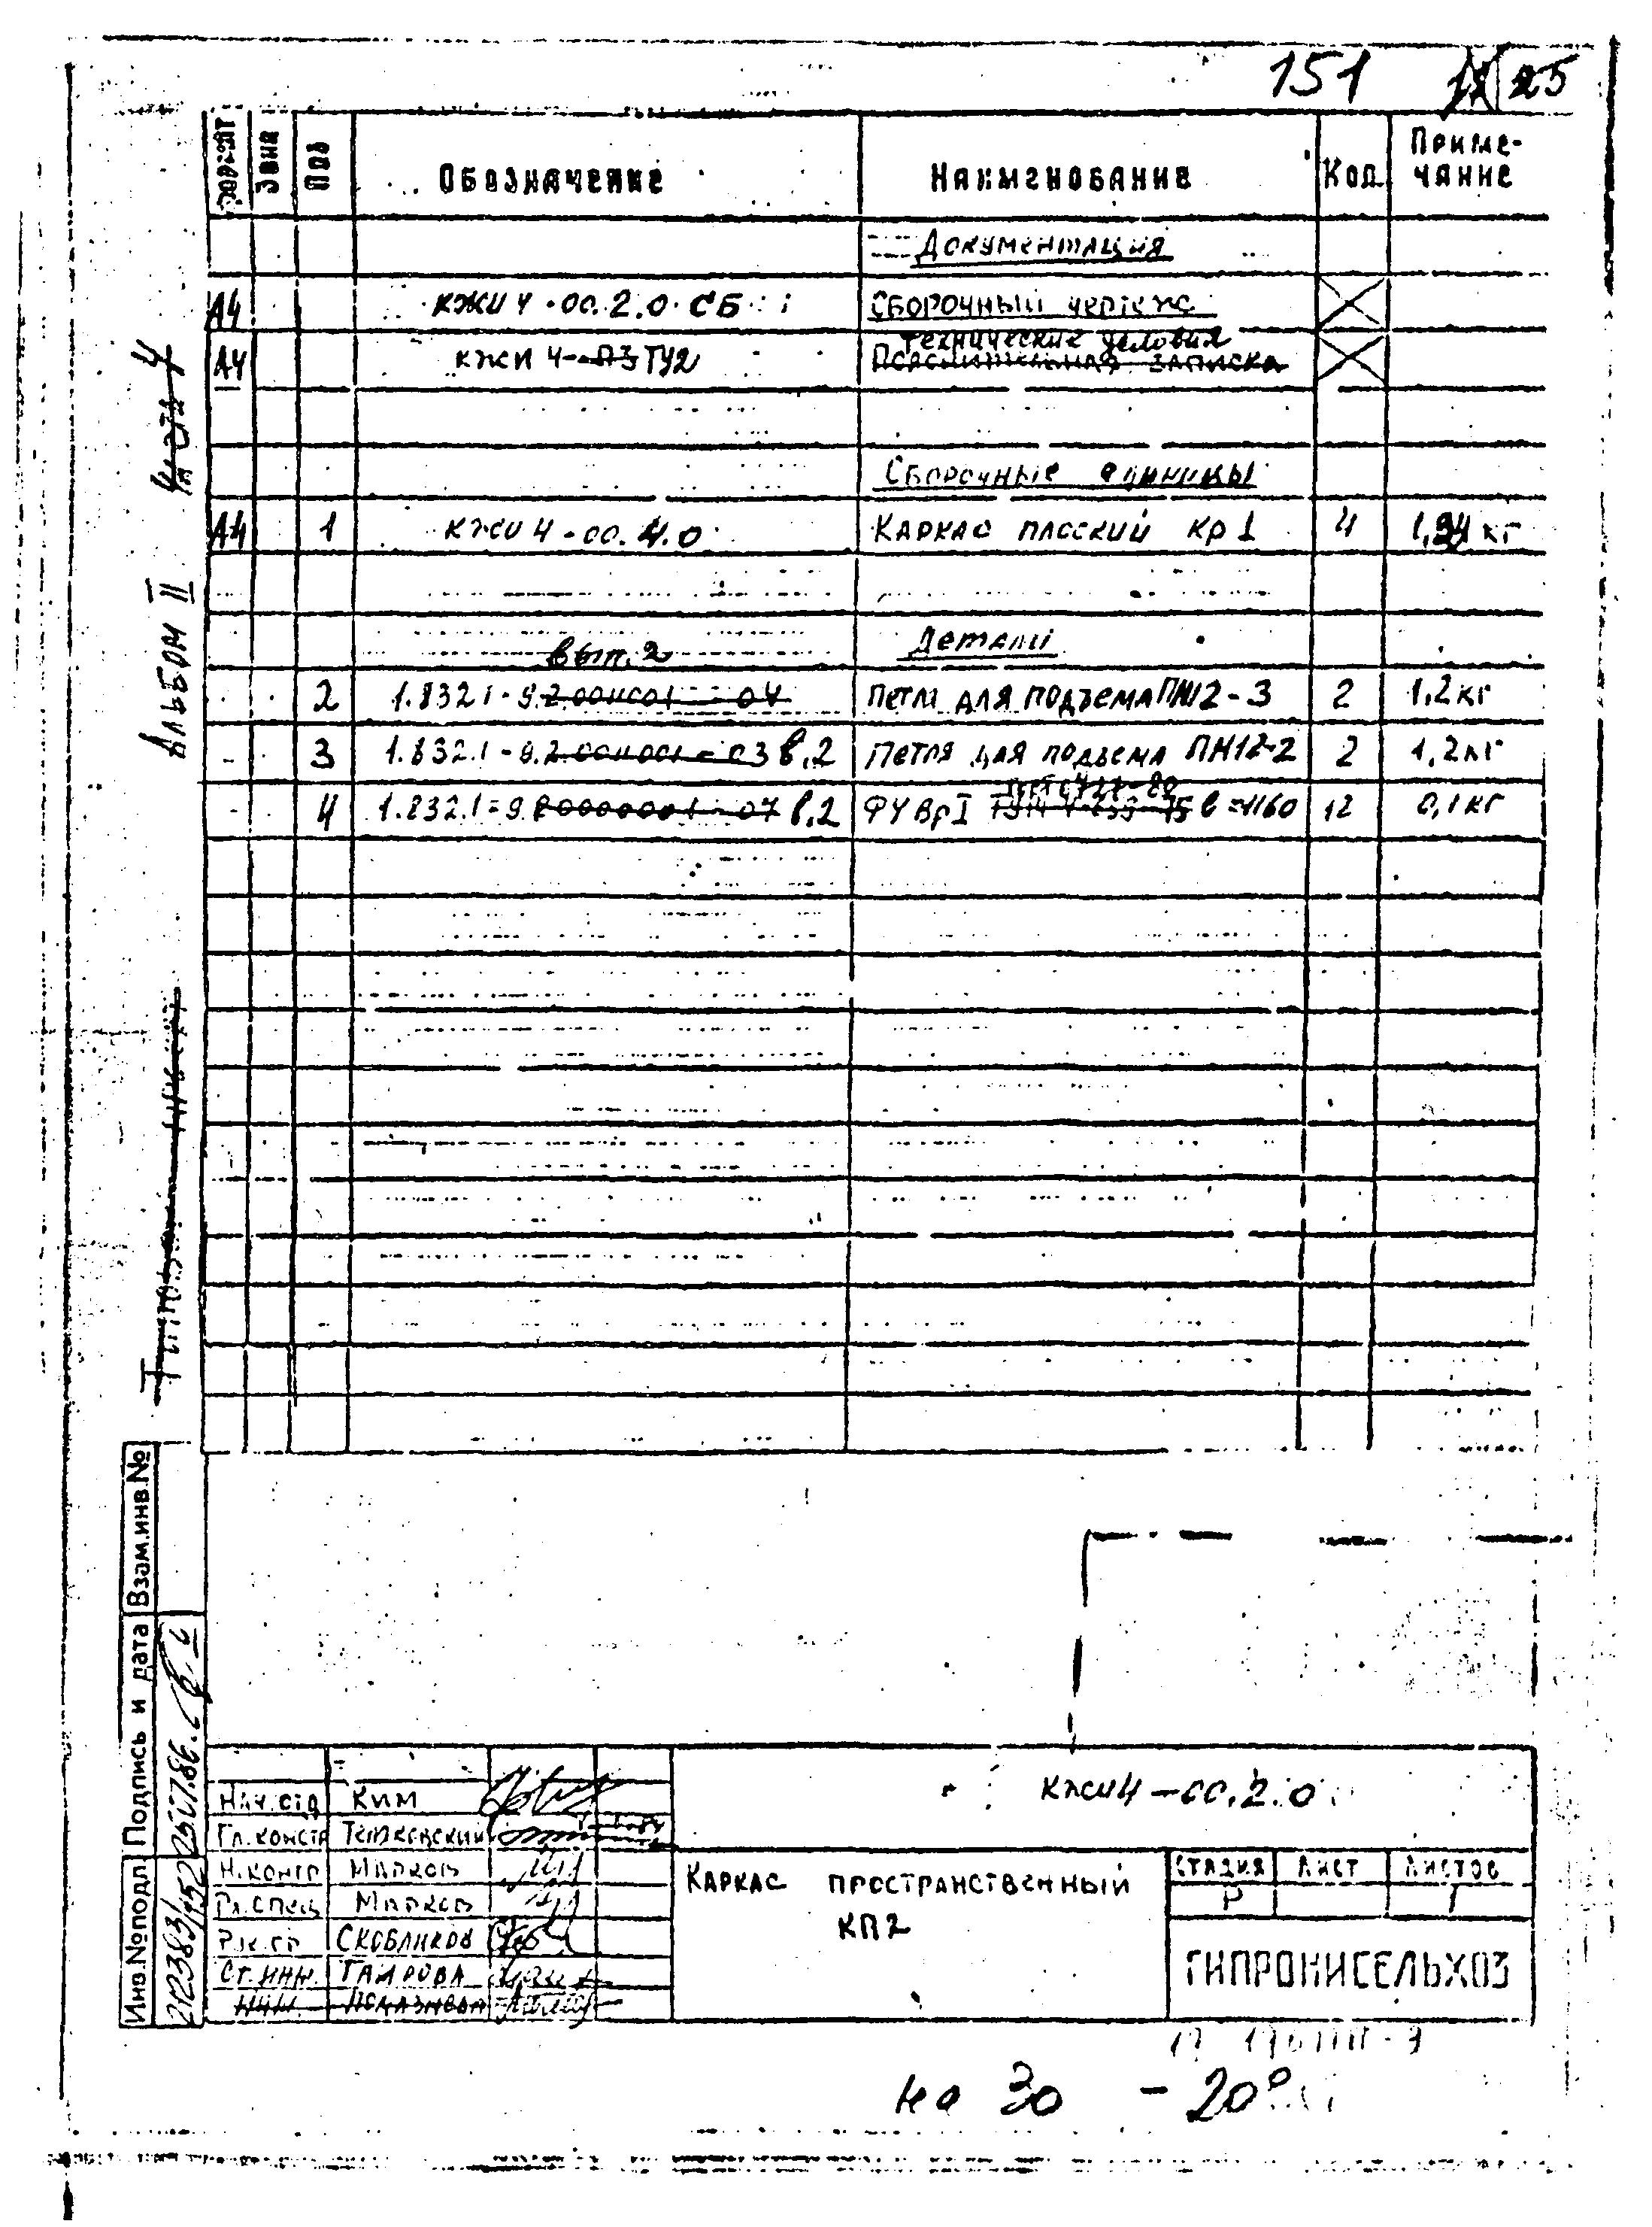 151 25
Формат Зона Поз Обозначение Наименование Кол. Приме-
чание
Документация
А4 КЖИ 4-00.2.0 СБ Сборочный чертеж
Технические условия
А4 КЖИ 4-ПЗ ТУ2 Пояснительная записка
Сборочные единицы
А4 1 КЖИ 4-00.4.0 Каркас плоский КР1 4 1,94 кг
Детали
вып. 2
2 1.832.1-9. Петля для подъема ПН12-3 2 1,2 кг
3 1.832.1-9. в.2 Петля для подъема ПН12-2 2 1,2 кг
4 1.832.1-9. в.2 Ф4 ВрI в=1160 12 0,1 кг
Альбом II
часть 4
Взам.инв.№
Подпись и дата
Инв.№подл.
КЖИ4-00.2.0
Нач.отд Ким
Гл.констр
Н.контр Марков
Гл.спец Марков
Рук.гр Скобликов
Ст.инж. Таирова
Инж.
Каркас пространственный
КП2
Стадия Лист Листов
Р 1
ГИПРОНИСЕЛЬХОЗ
на 30 -20°